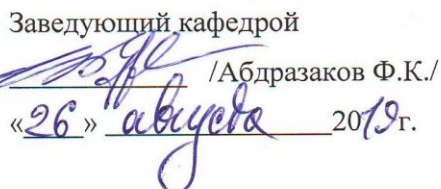 Заведующий кафедрой
/Абдразаков Ф.К./
«26» августа 2019г.